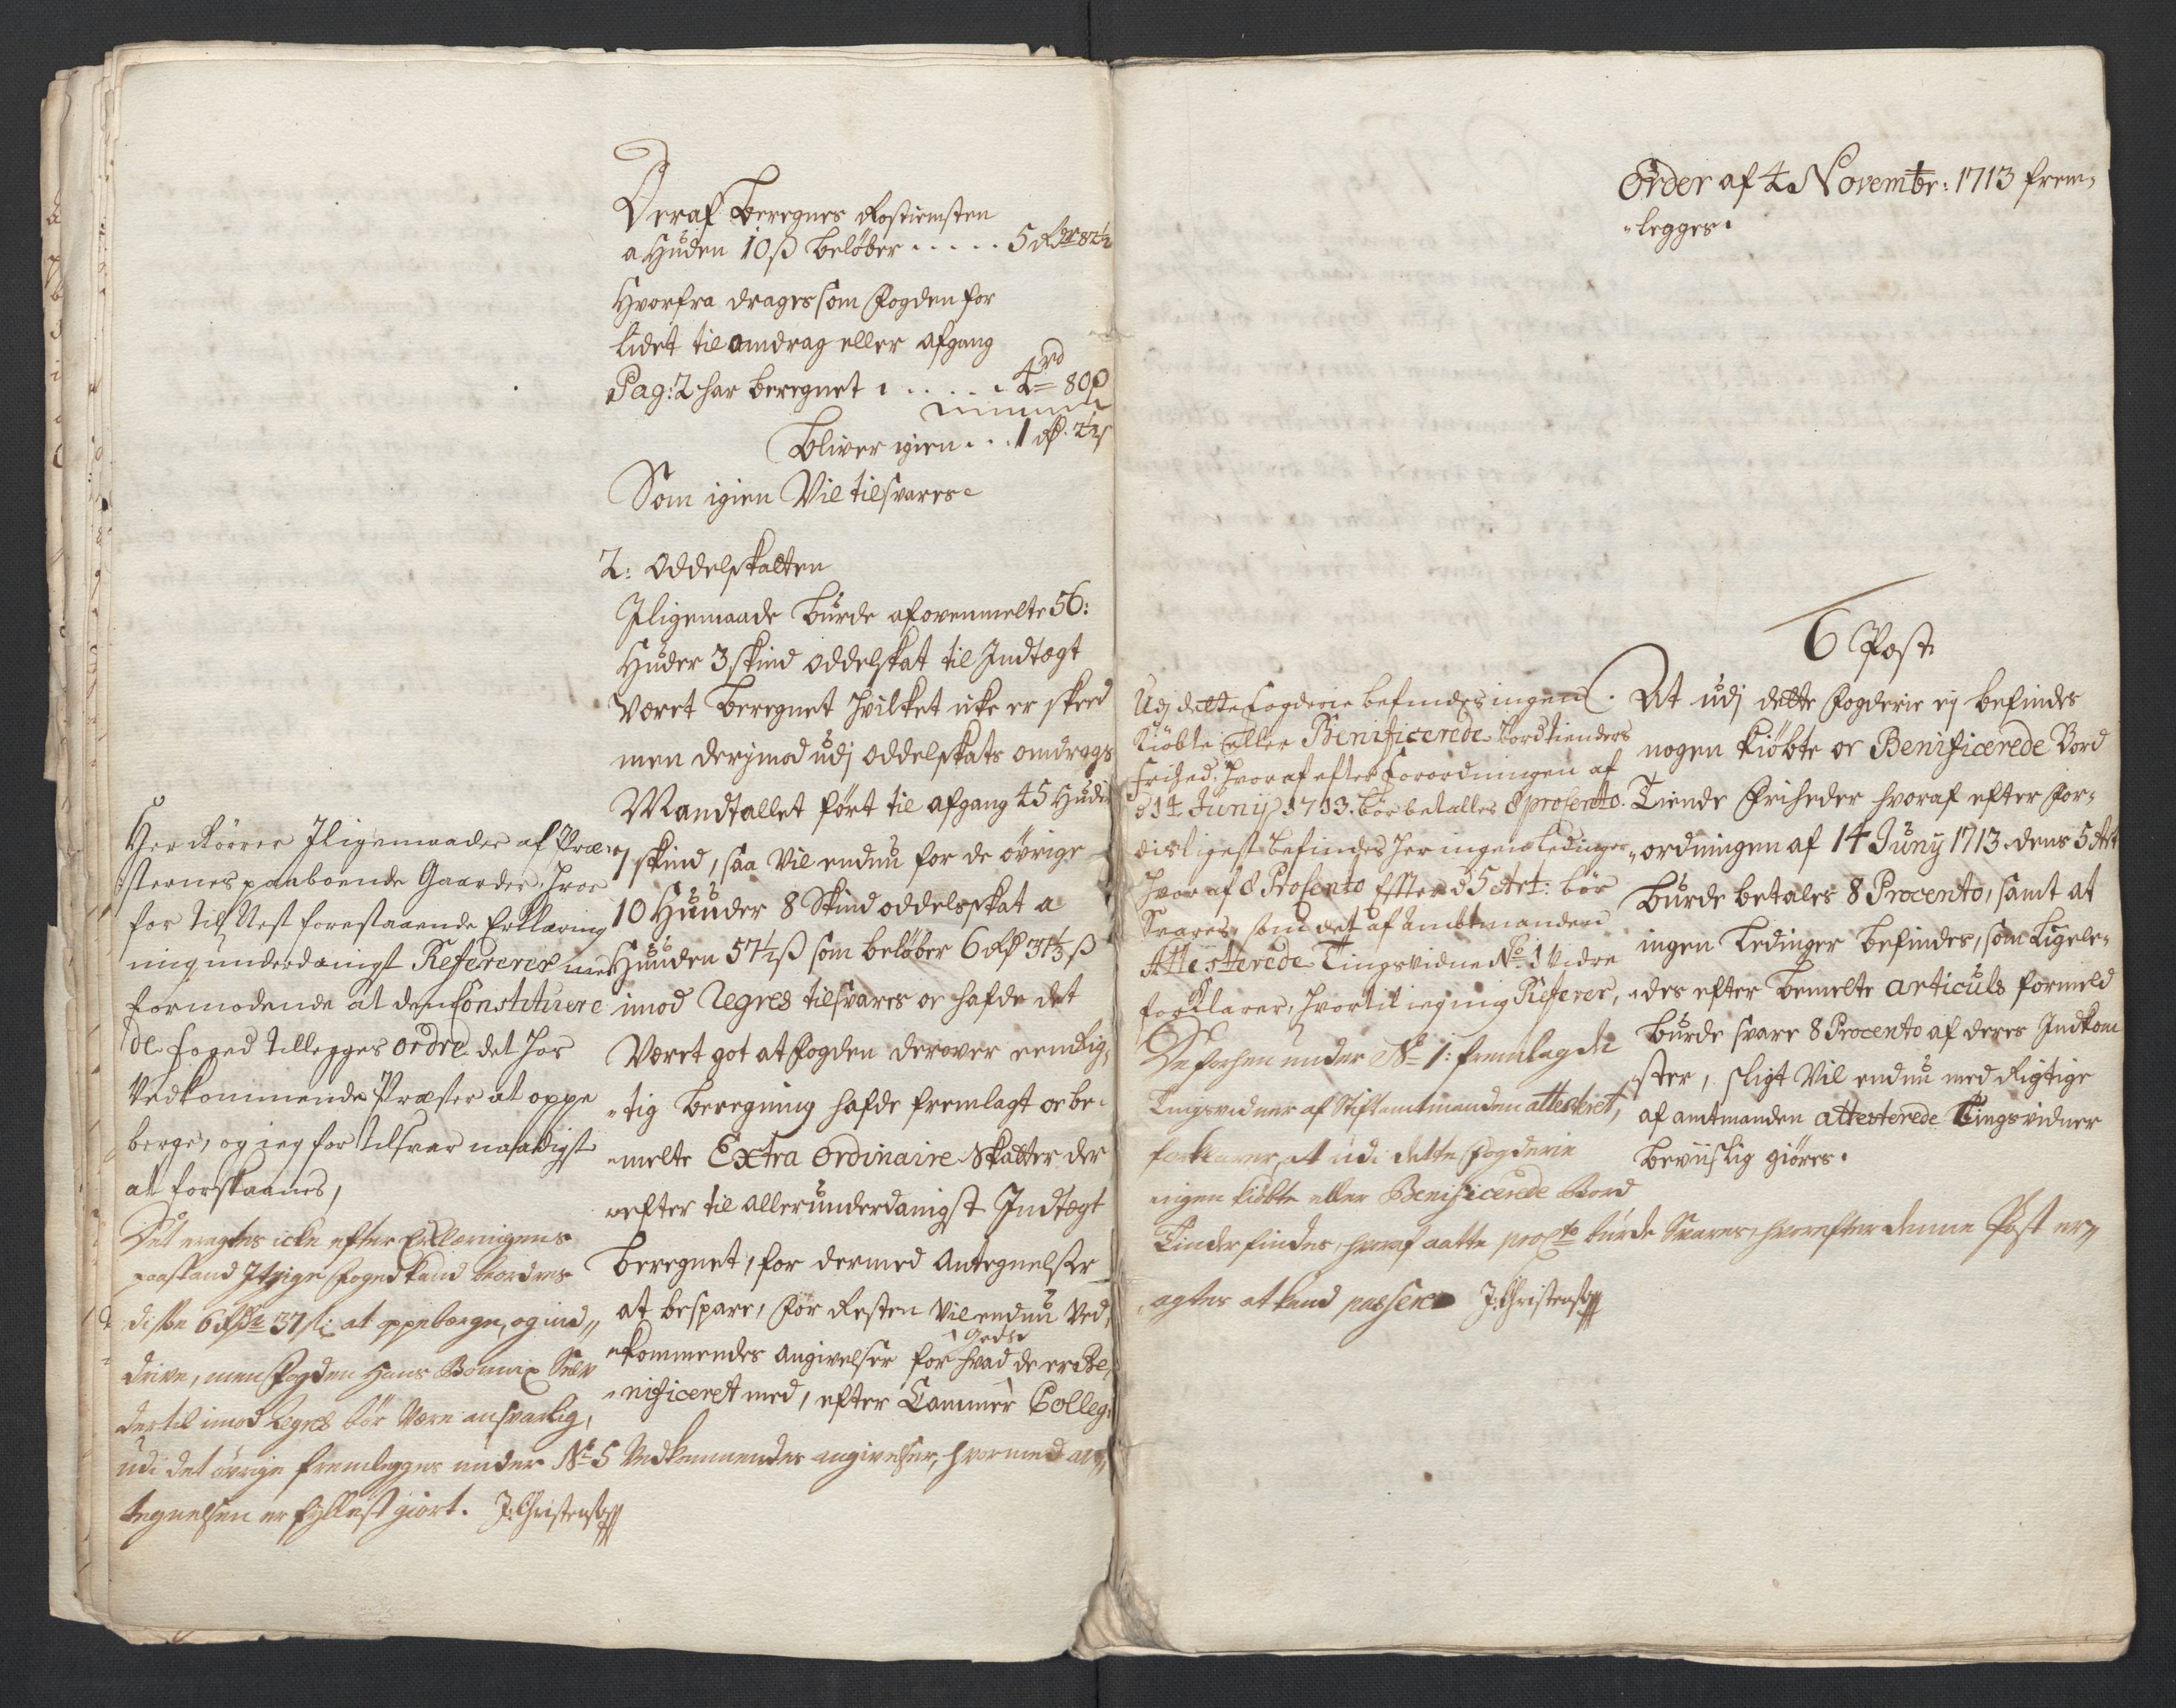 Deraf Beregnes Rostiensten
a Huden 10 ß beløber ..... 5 Rdr 82½
Hvorfra drages som Fogden for
lidet til omdrag eller afgang
Pag: 2 har beregnet ..... 4 rd 80 ß
Bliver igien ... 1 Rd. 2½ ß
Som igien Vil tilsvares
2: Oddelskatten
Iligemaade burde af ovenmelte 56:
Huder 3 skind oddelskat til Indtegt
Veret beregnet hvilket icke er skeed
men derimod udj oddelskats omdrags
Mandtallet ført til afgang 45 Huder
7 skind, saa Vil endnu for de øvrige
10 Huuder 8 Skind oddelsskat a
Huuden 57½ ß som beløber 6 Rd 31⅓ ß
imod Regres tilsvares oc hafde det
Veret got at Fogden derover
tig beregning hafde fremlagt oc be-
melte Extra Ordinaire Skatter der
efter til allerunderdanigst Indtegt
beregnet, for dermed Antegnelser
at bespare, For Resten Vil endnu Ved
kommendes angivelser for hvad Gods de er Be,
nificeret med, efter Cammer Colleg:
Her Rørrer Iligemaader af Præ-
sternes paaboende Gaarder, hvor
for til Nest forestaaende Erklæring
mig underdanigst Refererer med
formodende at den Constituere
de foged tillegges ordre det hos
Vedkommende Præster at oppe
berge, og ieg for tilsvar naadigst
at forskaanes,
Det eragtes icke efter Erklæringens
paastand Itzige Foged kand beordres
disse 6 Rdr 37 ß: at oppeberge, og ind
drive, men Fogden Hans Selv
dertil imod Regres bør Være ansvarlig,
udi det øvrige fremlegges under No 5 Vedkommendes angivelser, hvormed an
tegnelsen er fyllest giort. J: Christensen
Order af 4 Novembr: 1713 frem-
legges.
6 Post
At udj dette Fogderie ej befindes
nogen kiøbte oc Benificerede Bord
Tiende Friheder hvoraf efter For-
ordningen af 14 Juny 1713 dens 5 Art
burde betales 8 Procento, samt at
ingen Ledinger befindes, som Ligele-
des efter bemelte articuls formeld
burde svare 8 Procento af deres Indkom
ster, sligt Vil endnu med Rigtige
af amtmanden attesterede Tingsvidner
beviislig giøres.
Udj dette Fogderie befindes ingen
Kiøbte eller Benificerede Bordtienders
Frihed, hvoraf efter Forordningen af
d 14 Junij 1713 bør betalles 8 prosento.
disligest befindes her ingen Ledinger
hvoraf 8 Prosento Effter d 5 Art: bør
Svares, som det af Ambtmanden
Attesterede Tingsvidne No 1 Vidre
forklarer, hvortil ieg mig Referer,
De forhen under No 1: fremlagde
Tingsvidner af Stiftamtmanden attesteret,
forklarer, at udi dette Fogderie
ingen kiøbte eller Benificerede Bord
Tinder findes, hvoraf aatte procto burde Svares, hvorefter denne Post er
agtes at kand passere J: Christensen